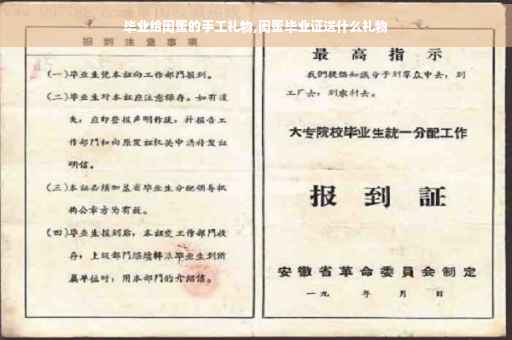 毕业给闺蜜的手工礼物,闺蜜毕业证送什么礼物
报到注意事项
(一)毕业生凭本证向工作部門报到。
(二)毕业生对本证应注意保存。如有遗
失,应即登报声明作废,并报告工
作部門和向原发证机关申請补发证
明信。
(三)本证必须加盖省毕业生分配领导机
构公章方为有效。
(四)毕业生报到后,本证交工作部門收
存;上级部門继續轉派毕业生到所
属单位时,用本部門的介绍信。
最高指示
我們提倡知识分子到羣众中去,到
工厂去,到农村去。
大专院校毕业生統一分配工作
报到証
安徽省革命委員会制定
一九 年 月 日